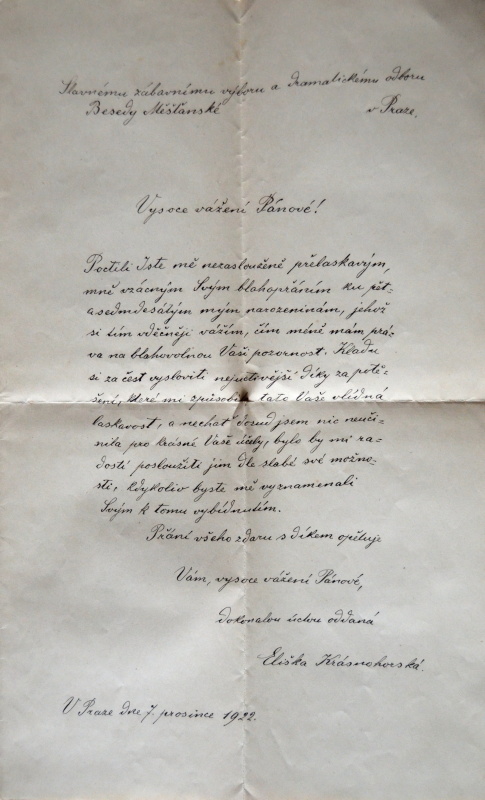 Slavnému zábavnímu výboru a dramatickému odboru
Besedy Měšťanské v Praze.
Vysoce vážení Pánové!
Poctili Jste mě nezaslouženě přelaskavým,
mně vzácným Svým blahopřáním ku pět-
asedmdesátým mým narozeninám, jehož
si tím vděčněji vážím, čím méně mám prá-
va na blahovolnou Vaši pozornost. Kladu
si za čest vysloviti nejuctivější díky za potě-
šení, které mi způsobila tato Vaše vlídná
laskavost, a nechať dosud jsem nic neuči-
nila pro krásné Vaše účely, bylo by mi ra-
dostí posloužiti jim dle slabé své možno-
sti, kdykoliv byste mě vyznamenali
Svým k tomu vybídnutím.
Přání všeho zdaru s díkem opětuje
Vám, vysoce vážení Pánové,
dokonalou úctou oddaná
Eliška Krásnohorská.
V Praze dne 7. prosince 1922.